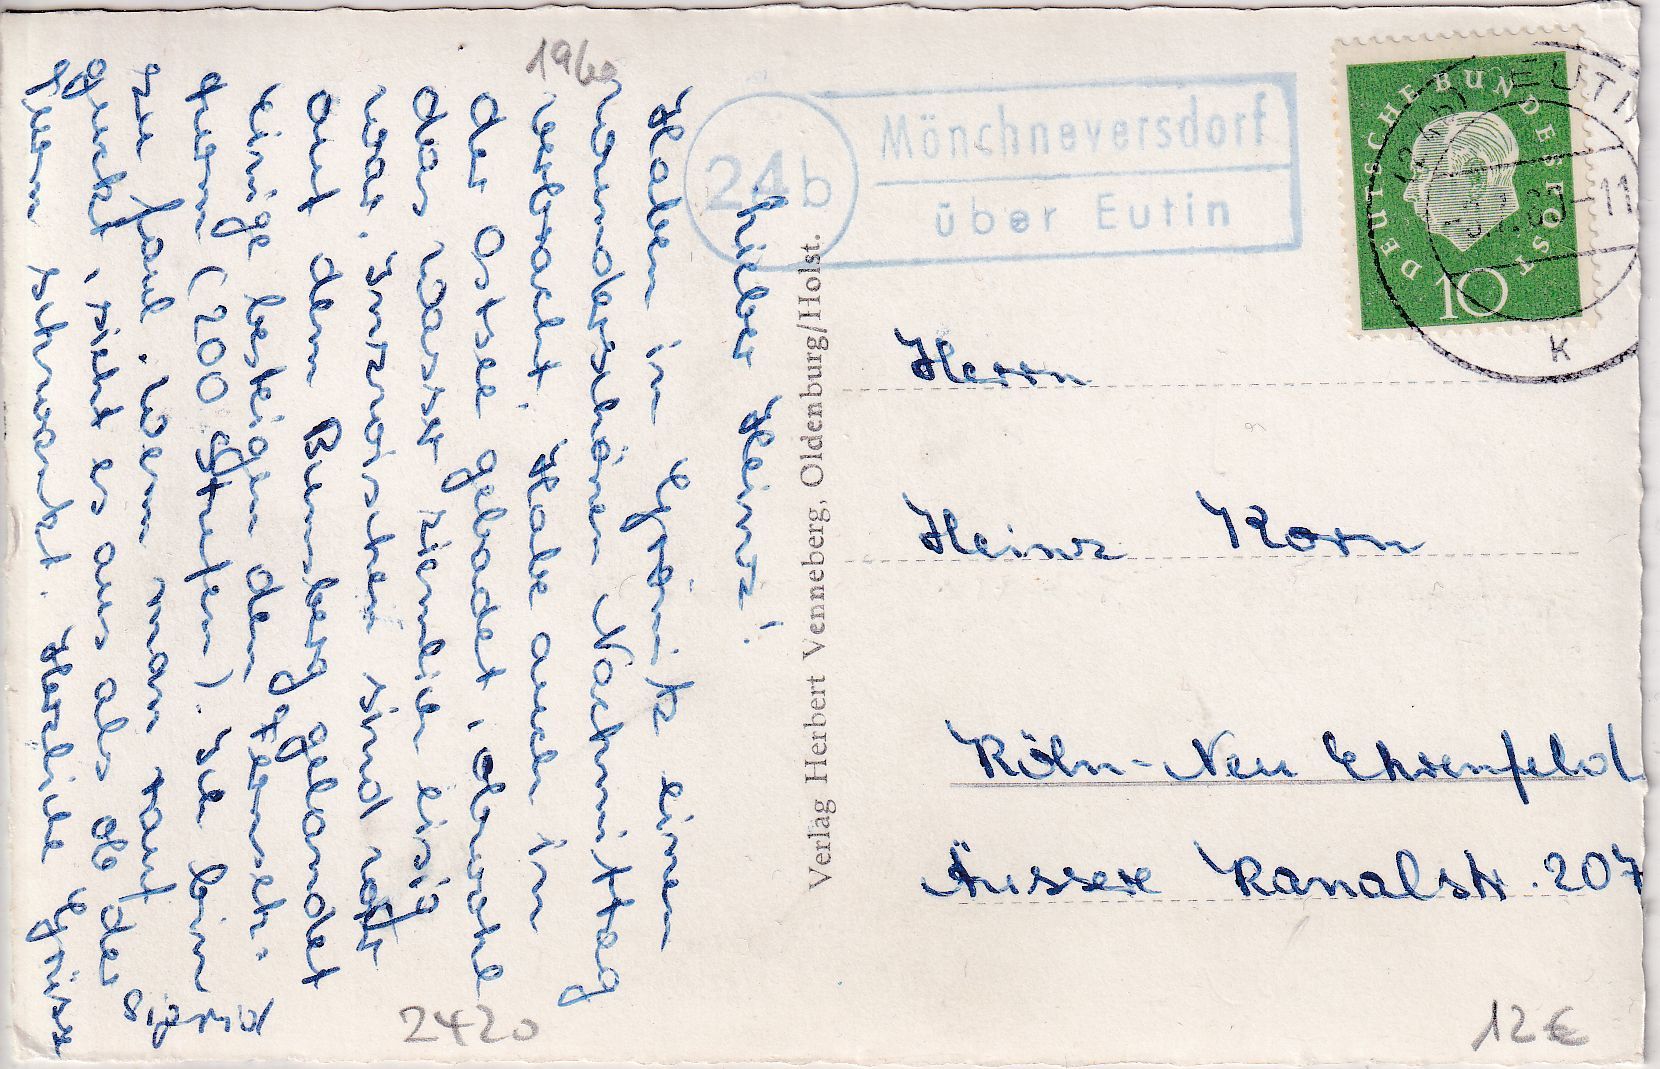 1960
24b
Mönchneversdorf
über Eutin
DEUTSCHE BUNDESPOST
10
EUTIN
-11
K
Lieber Heinz!
Habe in Grömitz einen
wunderschönen Nachmittag
verbracht. Habe auch in
der Ostsee gebadet, obwohl
das Wasser ziemlich eisig
war. Inzwischen sind wir
auf dem Bungsberg gelandet
einige besteigen den Fernseh-
turm (200 Stufen). Ich bin
zu faul. Wenn man rauf
guckt, sieht es aus als ob der
schwankt. Herzliche Grüsse
Sigrid
Verlag Herbert Venneberg, Oldenburg/Holst.
Herrn
Heinz Korn
Köln-Neu Ehrenfeld
Äussere Kanalstr. 207
2420
12 €